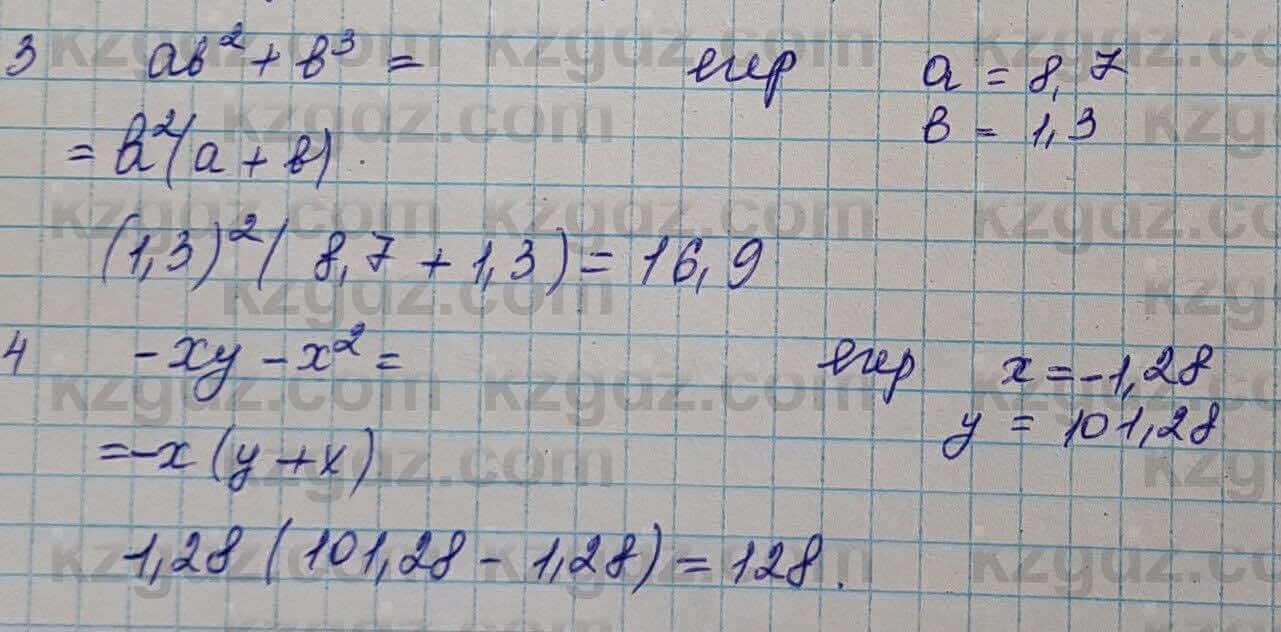 3 ab² + b³ = егер a = 8,7
b = 1,3
= b²(a + b).
(1,3)²(8,7 + 1,3) = 16,9
4 -xy - x² = егер x = -1,28
y = 101,28
= -x(y + x)
1,28(101,28 - 1,28) = 128.
kzgdz.com